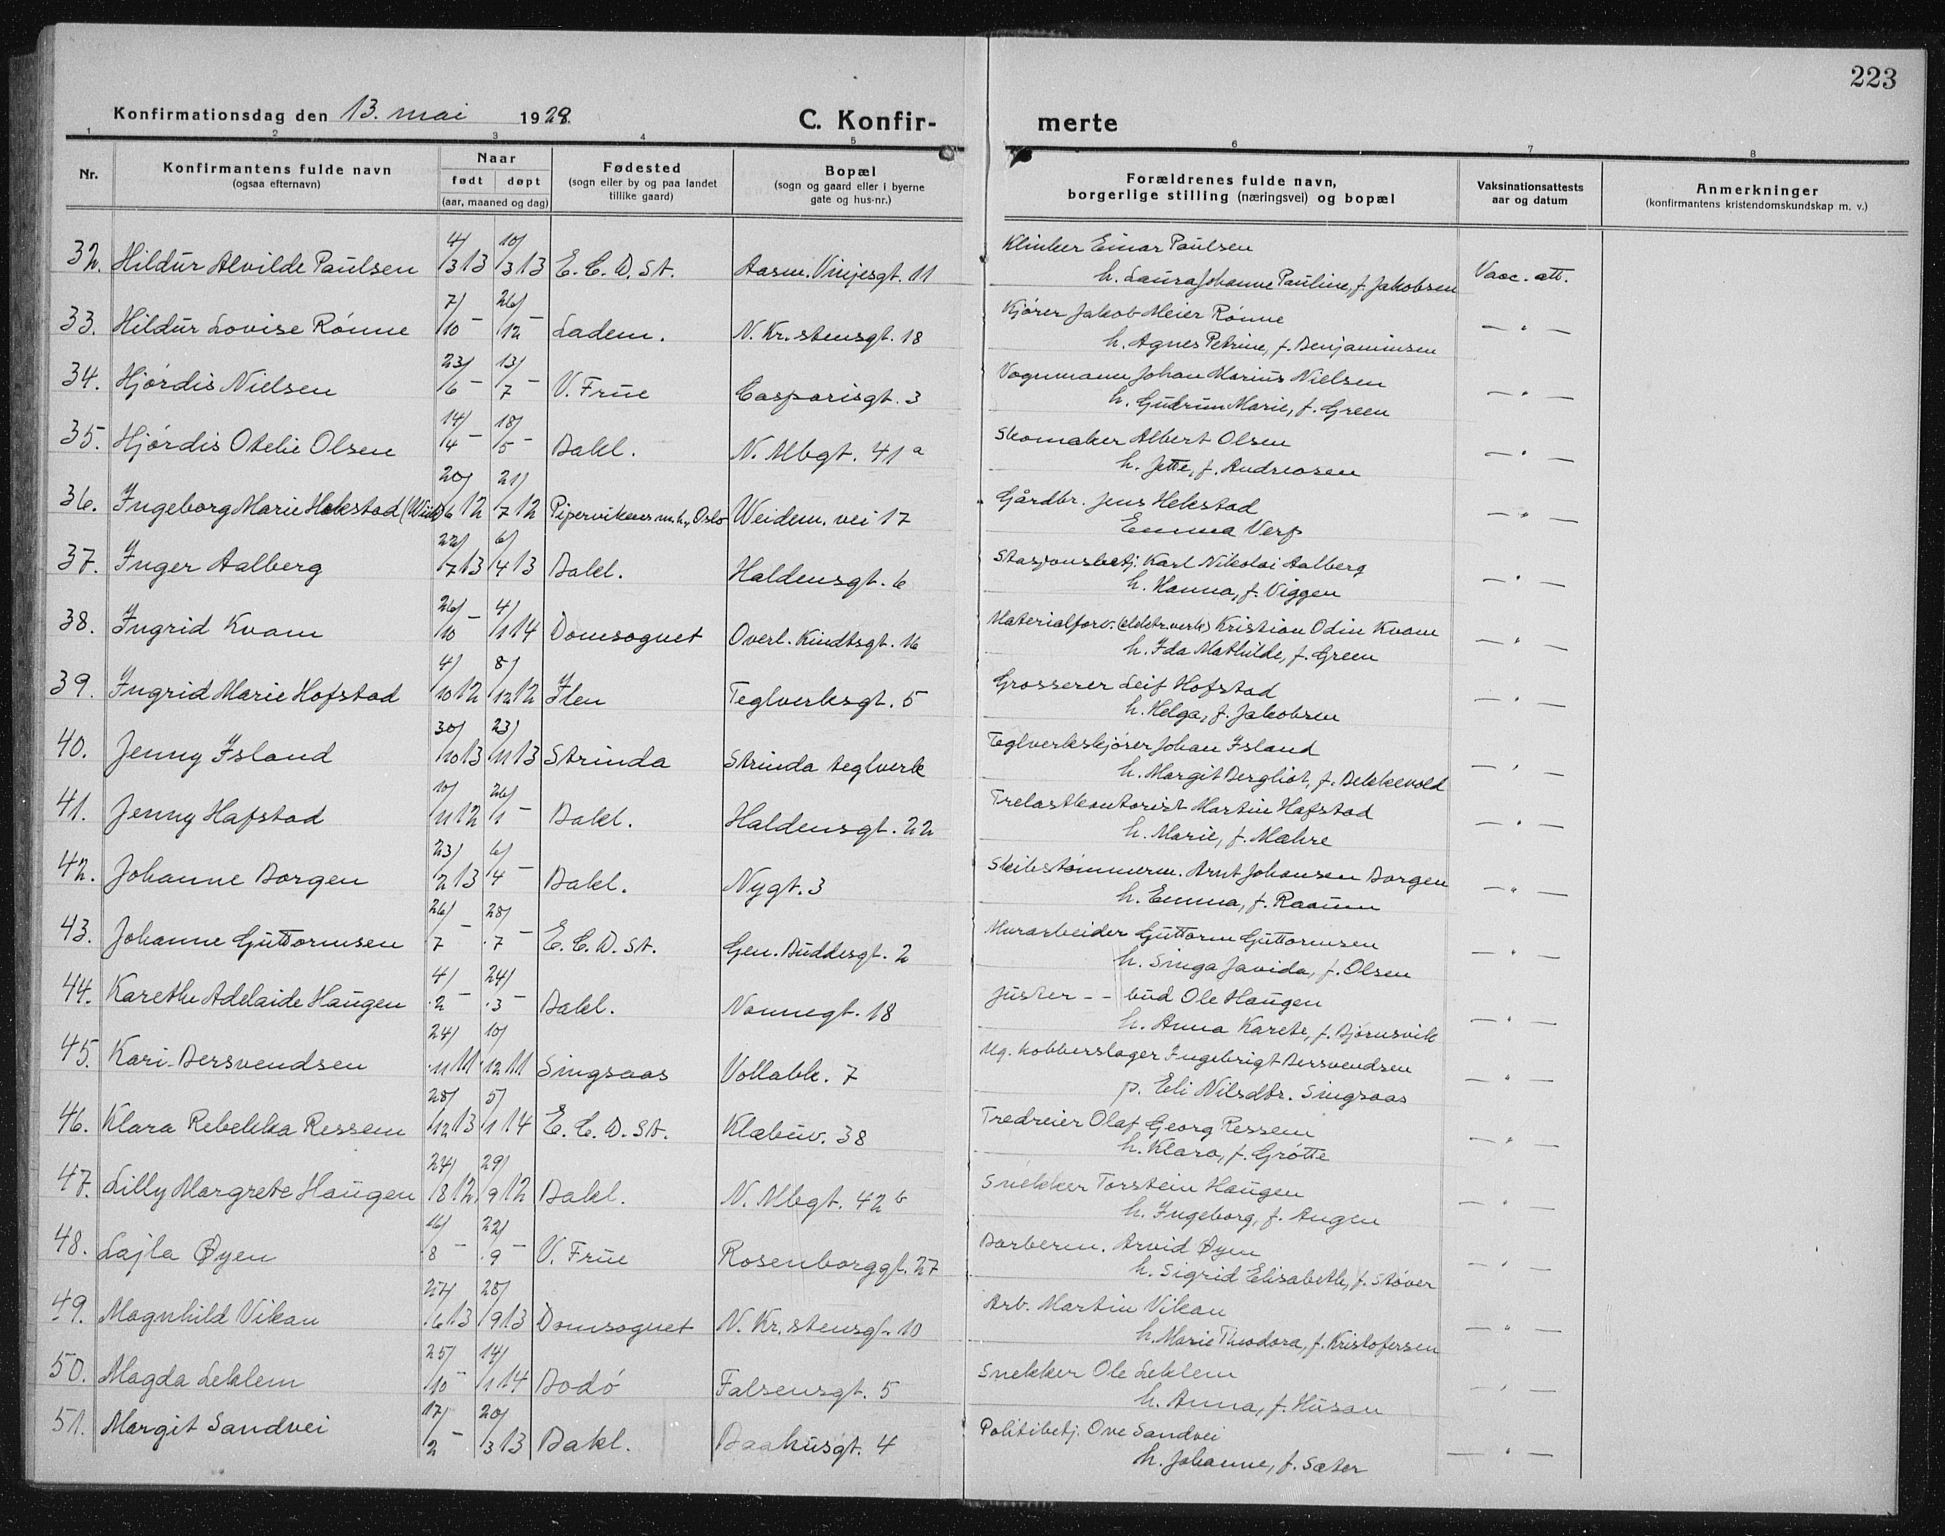 223
Konfirmationsdag den 13. mai 1928.
C. Konfir-
merte
1 2 3 4 5 6 7 8
Nr.
Konfirmantens fulde navn
(ogsaa efternavn)
Naar
født døpt
(aar, maaned og dag)
Fødested
(sogn eller by og paa landet
tillike gaard)
Bopæl
(sogn og gaard eller i byerne
gate og hus-nr.)
Forældrenes fulde navn,
borgerlige stilling (næringsvei) og bopæl
Vaksinationsattests
aar og datum
Anmerkninger
(konfirmantens kristendomskundskap m. v.)
32. Hildur Alvilde Paulsen 4/3 13 10/3 13 E. C. D. St. Aasm. Vinjesgt. 11 Klinker Einar Paulsen
h. Laura Johanne Pauline, f. Jakobsen Vacc. att.
33. Hildur Lovise Rønne 7/10 - 26/12 - Ladem. N. Kr.stensgt. 18 Kjører Jakob Meier Rønne
h. Agnes Petrine, f. Benjaminsen — " —
34. Hjørdis Nielsen 23/6 - 13/7 - V. Frue Casparisgt. 3 Vognmann Johan Marius Nielsen
h. Gudrun Marie, f. Green — " —
35. Hjørdis Otelie Olsen 14/4 - 18/5 - Bakl. N. Mbgt. 41 a Skomaker Albert Olsen
h. Jette, f. Andreasen — " —
36. Ingeborg Marie Hekstad 20/6 12 21/7 12 Pipervikens m.h., Oslo Weidem. vei 17 Gårdbr. Jens Hekstad
Emma Verp — " —
37. Inger Aalberg 22/7 13 6/4 13 Bakl. Haldensgt. 6 Stasjonsbetj. Karl Nikolai Aalberg
h. Hanna, f. Viggen — " —
38. Ingrid Kvam 26/10 - 4/1 14 Domsognet Overl. Kindtsgt. 16 Materialforv. (elektr.verk) Kristian Odin Kvam
h. Ida Mathilde, f. Green — " —
39. Ingrid Marie Hofstad 4/10 12 8/12 12 Ilen Teglverksgt. 5 Grosserer Leif Hofstad
h. Helga, f. Jakobsen — " —
40. Jenny Island 30/10 13 23/11 13 Strinda Strinda teglverk Teglverkskjører Johan Island
h. Margit Bergliot, f. Bekkevold — " —
41. Jenny Hafstad 10/11 12 26/1 - Bakl. Haldensgt. 22 Trelastkontorist Martin Hafstad
h. Marie, f. Mæhre — " —
42. Johanne Borgen 23/2 13 6/4 - Bakl. Nygt. 3 Skibstømmerm. Arnt Johansen Borgen
h. Emma, f. Raaum — " —
43. Johanne Guttormsen 26/7 - 28/7 - E. C. D. St. Gen. Buddesgt. 2 Murarbeider Guttorm Guttormsen
h. Singa Javida, f. Olsen — " —
44. Karethe Adelaide Haugen 4/2 - 24/3 - Bakl. Nonnegt. 18 Juster - - bud Ole Haugen
h. Anna Karete, f. Bjørnsvik — " —
45. Kari Bersvendsen 24/11 11 10/12 11 Singsaas Vollabk. 7 Ug. kobberslager Ingebrigt Bersvendsen
p. Eli Nilsdtr. Singsaas — " —
46. Klara Rebekka Ressem 28/12 13 5/1 14 E. C. D. St. Klæbuv. 38 Tredreier Olaf Georg Ressem
h. Klara, f. Grøtte — " —
47. Lilly Margrete Haugen 24/8 12 29/9 12 Bakl. N. Mbgt. 42 b Snekker Torstein Haugen
h. Ingeborg, f. Augen — " —
48. Lajla Øyen 16/8 - 22/9 - V. Frue Rosenborggt. 27 Barberm. Arvid Øyen
h. Sigrid Elisabeth, f. Støver — " —
49. Magnhild Vikan 27/6 13 28/9 13 Domsognet N. Kr.stensgt. 10 Arb. Martin Vikan
h. Marie Theodora, f. Kristofersen — " —
50. Magda Leklem 25/10 - 14/1 14 Bodø Falsensgt. 5 Snekker Ole Leklem
h. Anna, f. Husan — " —
51. Margit Sandvei 17/2 - 20/3 13 Bakl. Baahusgt. 4 Politibetj. Ove Sandvei
h. Johanne, f. Sæter — " —